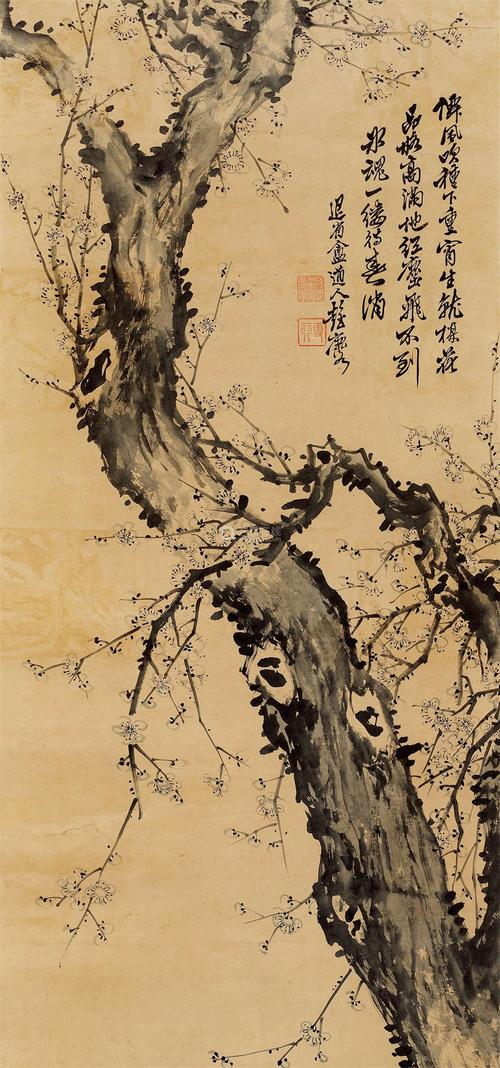 風吹種下重宵生就楳花
品格高滿地紅塵飛不到
冰魂一縷待春消
退省盦道人彭玉麐